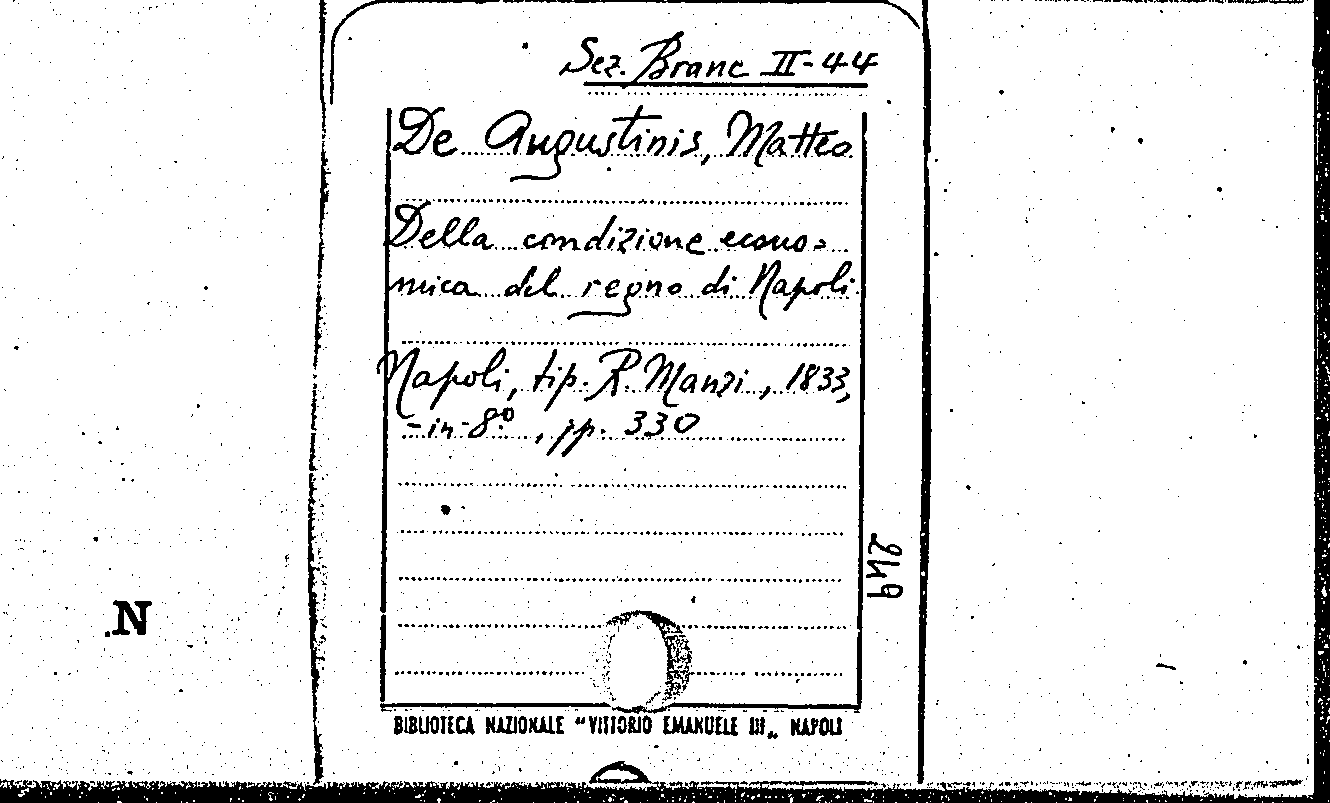 Sez. Branc II-44
De Augustinis, Matteo
Della condizione econo=
mica del regno di Napoli
Napoli, tip. R. Manzi, 1833,
-in-8º, pp. 330
BIBLIOTECA NAZIONALE "VITTORIO EMANUELE III„ NAPOLI
N